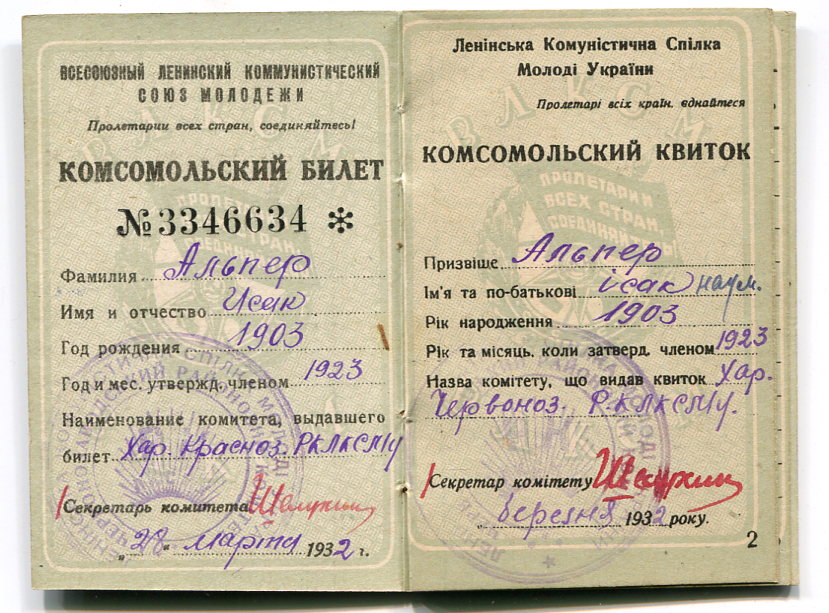 ВСЕСОЮЗНЫЙ ЛЕНИНСКИЙ КОММУНИСТИЧЕСКИЙ
СОЮЗ МОЛОДЕЖИ
Пролетарии всех стран, соединяйтесь!
КОМСОМОЛЬСКИЙ БИЛЕТ
№ 3346634 *
Фамилия Альпер
Имя и отчество Исак
Год рождения 1903
Год и мес. утвержд. членом 1923
Наименование комитета, выдавшего
билет Хар. Красноз. РКЛКСМУ
Секретарь комитета
„20“ марта 1932 г.
Ленінська Комуністична Спілка
Молоді України
Пролетарі всіх країн, єднайтеся
КОМСОМОЛЬСКИЙ КВИТОК
Призвіше Альпер
Ім'я та по-батькові ісак наум.
Рік народження 1903
Рік та місяць, коли затверд. членом 1923
Назва комітету, що видав квиток Хар.
Червоноз. РКЛКСМУ.
Секретар комітету
„ березня 1932 року.
2
ВЛКСМ
ПРОЛЕТАРИИ
ВСЕХ СТРАН,
СОЕДИНЯЙТЕСЬ!